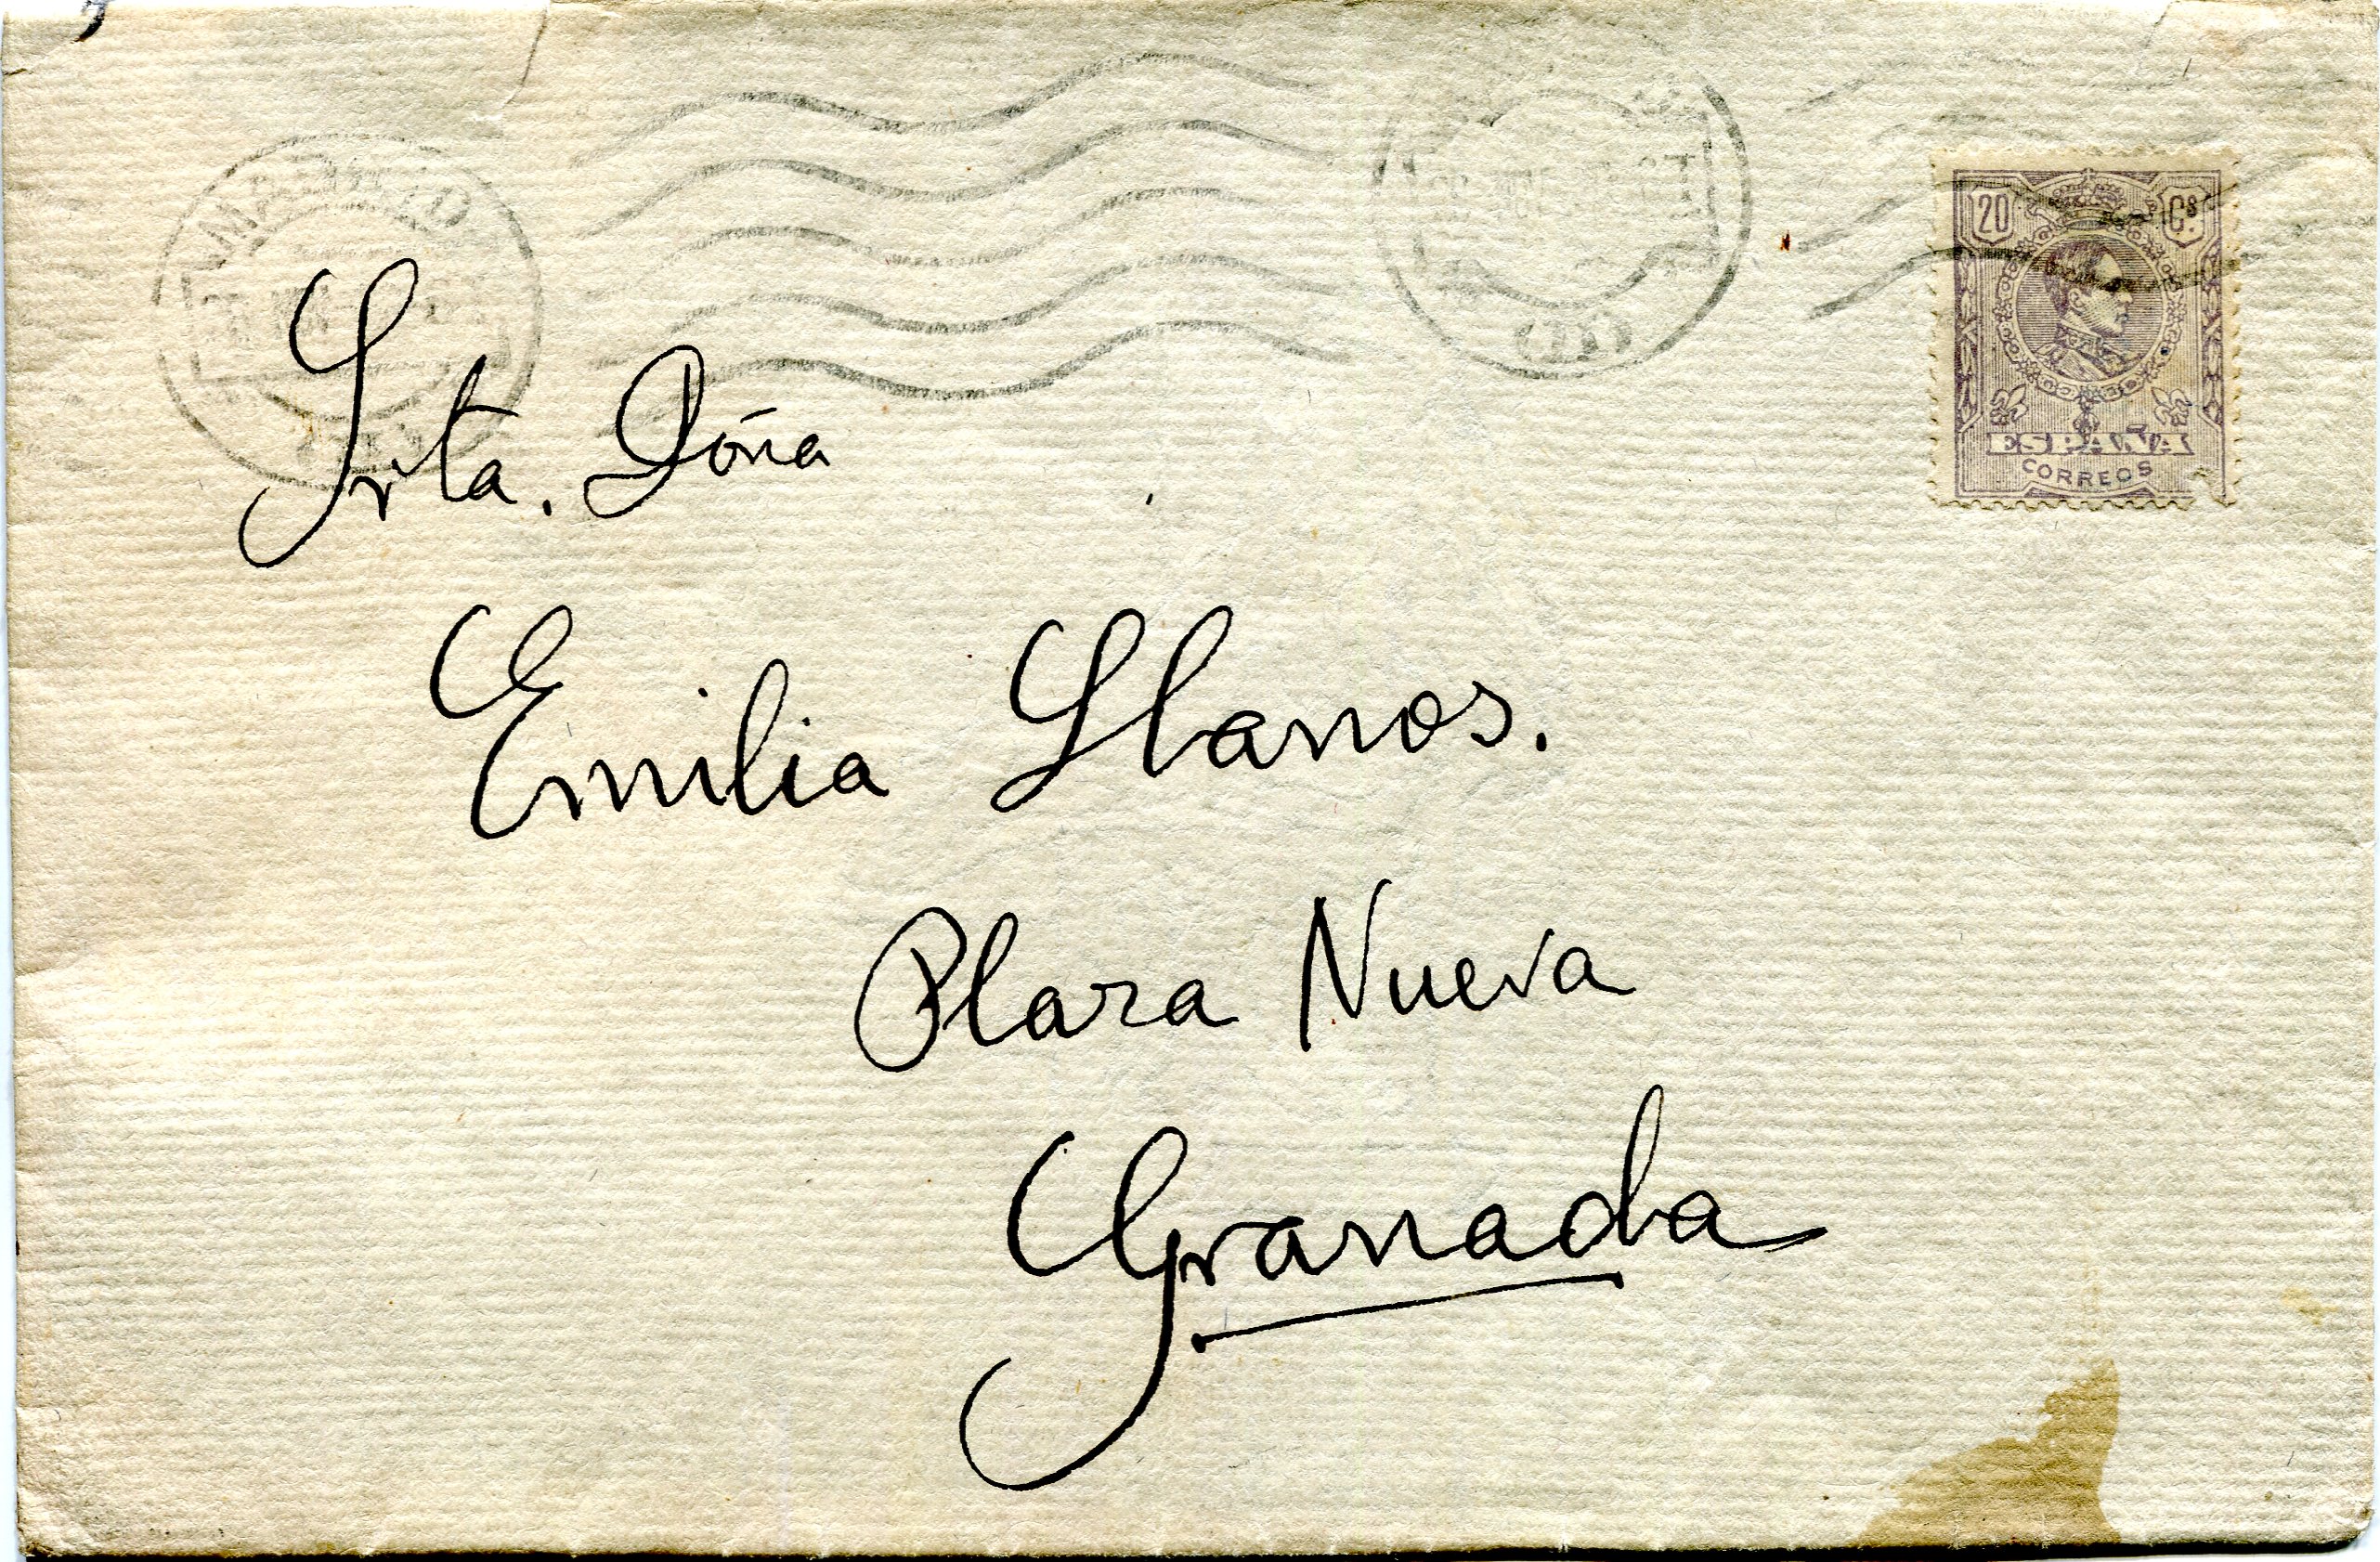 MADRID
20 Cs.
ESPAÑA
CORREOS
Srta. Doña
Emilia Llanos.
Plaza Nueva
Granada